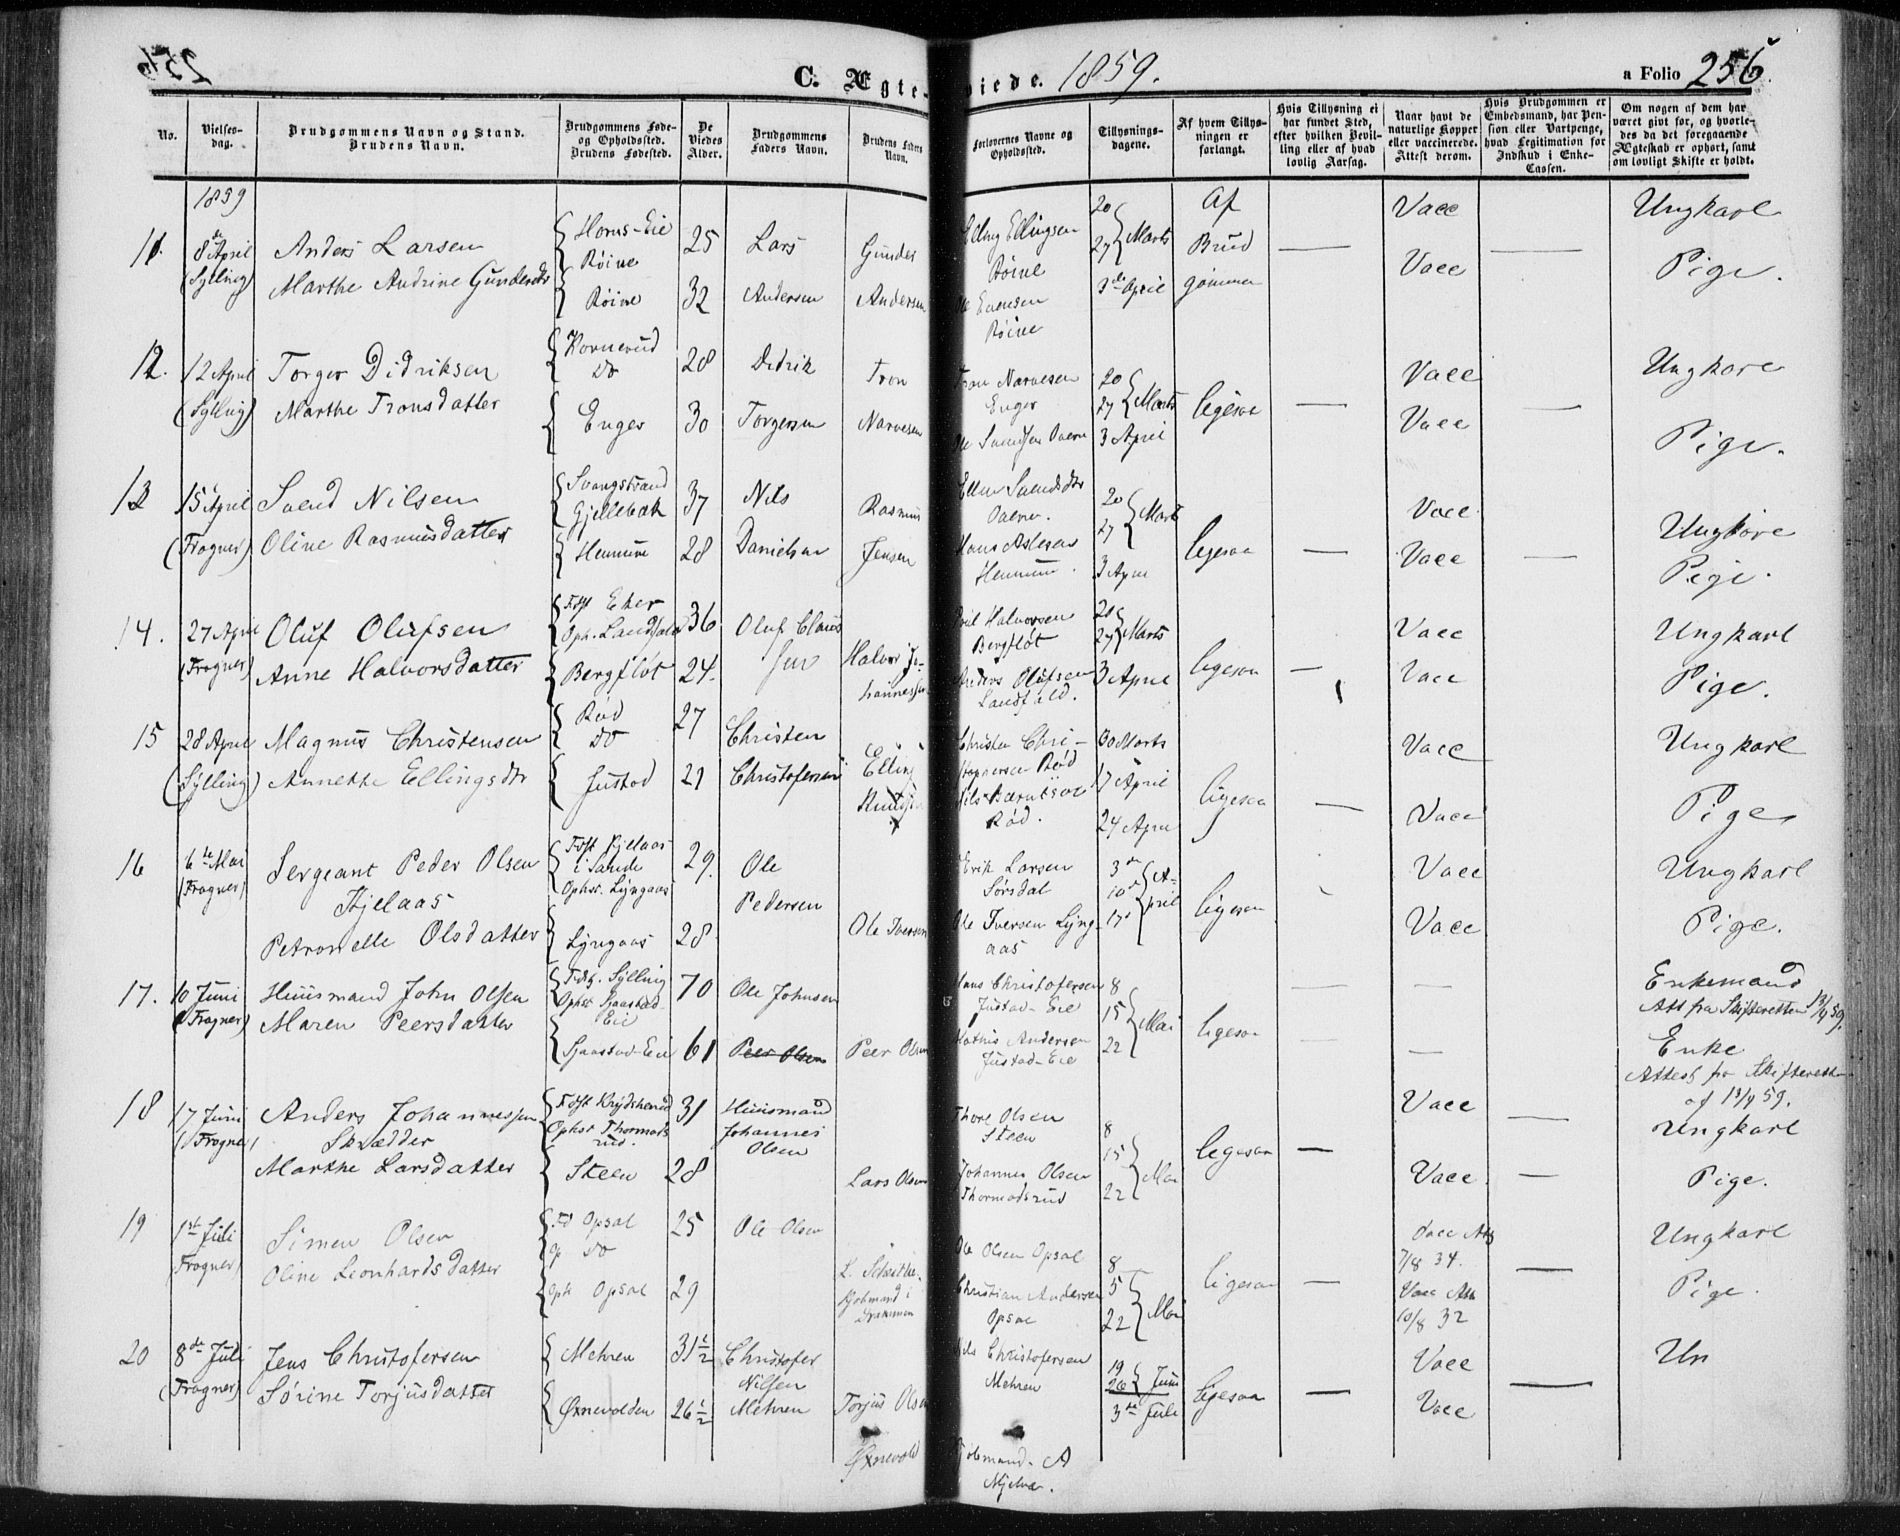 C. Ægteviede. 1859.
a Folio 256.
No.
Vielses-dag.
Brudgommens Navn og Stand. Brudens Navn.
Brudgommens Føde- og Opholdssted. Brudens Fødested.
De Viedes Alder.
Brudgommens Faders Navn.
Brudens Faders Navn.
Forlovernes Navne og Opholdssted.
Tillysnings-dagene.
Af hvem Tillysningen er forlangt.
Hvis Tillysning ei har fundet Sted, efter hvilken Bevilling eller af hvad lovlig Aarsag.
Naar havt de naturlige Kopper eller vaccinerede. Attest derom.
Hvis Brudgommen er Embedsmand, har Pension eller Vartpenge, hvad Legitimation for Indskud i Enke-Cassen.
Om nogen af dem har været givt for, og hvorledes da det foregaaende Ægteskab er ophørt, samt om lovligt Skifte er holdt.
1859
11. 8de April (Sylling) Anders Larsen Røine 25 Lars Andersen
Marthe Andrine Gundersdtr Røine 32 Gunder Andersen
Elling Ellingsen Røine
Ole Evensen Røine
20 27 Marts 3de April
Af Brudgommen
Vacc Vacc
Ungkarl
Pige.
12. 12 April (Sylling) Torger Didriksen Kornerud Do 28 Didrik Torgersen
Marthe Tronsdatter Enger 30 Tron Narvesen
Tron Narvesen Enger
20 27 Marts 3 April
ligesaa
Vacc Vacc
Ungkarl
Pige.
13 15 April (Frogner) Svend Nilsen Svangstrand Gjellebæk 37 Nils Danielsen
Oline Rasmusdatter Hennum 28 Rasmus Jensen
Hans Aslesen Hennum.
20 27 Marts 3 April
ligesaa
Vacc Vacc
Ungkarl
Pige.
14. 27 April (Frogner) Oluf Olufsen Fdst Eker Oph. Landfald 36 Oluf Clausen
Anne Halvorsdatter Bergfløt 24. Halvor Johannessen
Halvorsen Bergfløt
Anders Olufsen Landfald.
20 27 Marts 3 April
ligesaa
Vacc Vacc
Ungkarl
Pige.
15 28 April (Sylling) Magnus Christensen Rød Do 27 Christen Christofersen
Annette Ellingsdtr Justad 21 Elling Knudsen
Christen Christophersen Rød
Nils Berntsen Rød.
30 Marts 17 April 24 April
ligesaa
Vacc Vacc
Ungkarl
Pige
16 6te Mai (Frogner) Sergeant Peder Olsen Kjelaas Fdst Kjelaas i Sande Ophst. Lyngaas 29. Ole Pedersen
Petronelle Olsdatter Lyngaas 28 Ole Iversen
Erik Larsen Sørsdal
Ole Iversen Lyngaas
3de 10de 17de April
ligesaa
Vacc Vacc
Ungkarl
Pige.
17. 10 Juni (Frogner) Huusmand John Olsen Fdst. Sylling Ophst Sjaastad Eie 70 Ole Johnsen
Maren Peersdatter Sjaastad-Eie 61 Peer Olsen Peer Olsen
Hans Christofersen Justad-Eie
Mathis Andersen Justad-Eie
8 15 22 Mai
ligesaa
Enkemand
Att fra Skifteretten 13/4 59.
Enke
Attest fra Skifteretten
af 13/4 59.
18 17 Juni (Frogner) Anders Johannessen Skrædder Ophst Thormodsrud. 31 Huusmand Johannes Olsen
Marthe Larsdatter Steen 28 Lars Olsen
Thore Olsen Steen
Johannes Olsen Thormodsrud
8 15 22 Mai
ligesaa
Vacc Vacc
Ungkarl
Pige.
19 1st Juli (Frogner) Simen Olsen Fd Opsal Op Do 25 Ole Olsen
Oline Leonhardsdatter Oph Opsal 29 Kjøbmand i Drammen
Ole Olsen Opsal
Christian Andersen Opsal
8 5 22 Mai
ligesaa
Vacc Att 7/8 34.
Vacc Att 10/8 32
Ungkarl
Pige.
20 8de Juli (Frogner) Jens Christofersen Mehren 31 1/2 Christofer Nilsen Mehren
Sørine Torjusdatter Øxnevolden 26 1/2 Torjus Olsen Øxnevold
Nils Christofersen Mehren
Kjøbmand A
19 26 Juni 3de Juli
ligesaa
Vacc Vacc
Un